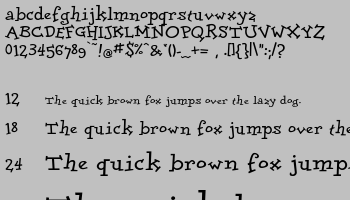 abcdefghijklmnopqrstuvwxyz
ABCDEFGHIJKLMNOPQRSTUVWXYZ
0123456789`~!@#$%^&*()-_+= , .[]{}|\":;/?
12 The quick brown fox jumps over the lazy dog.
18 The quick brown fox jumps over the
24 The quick brown fox jump